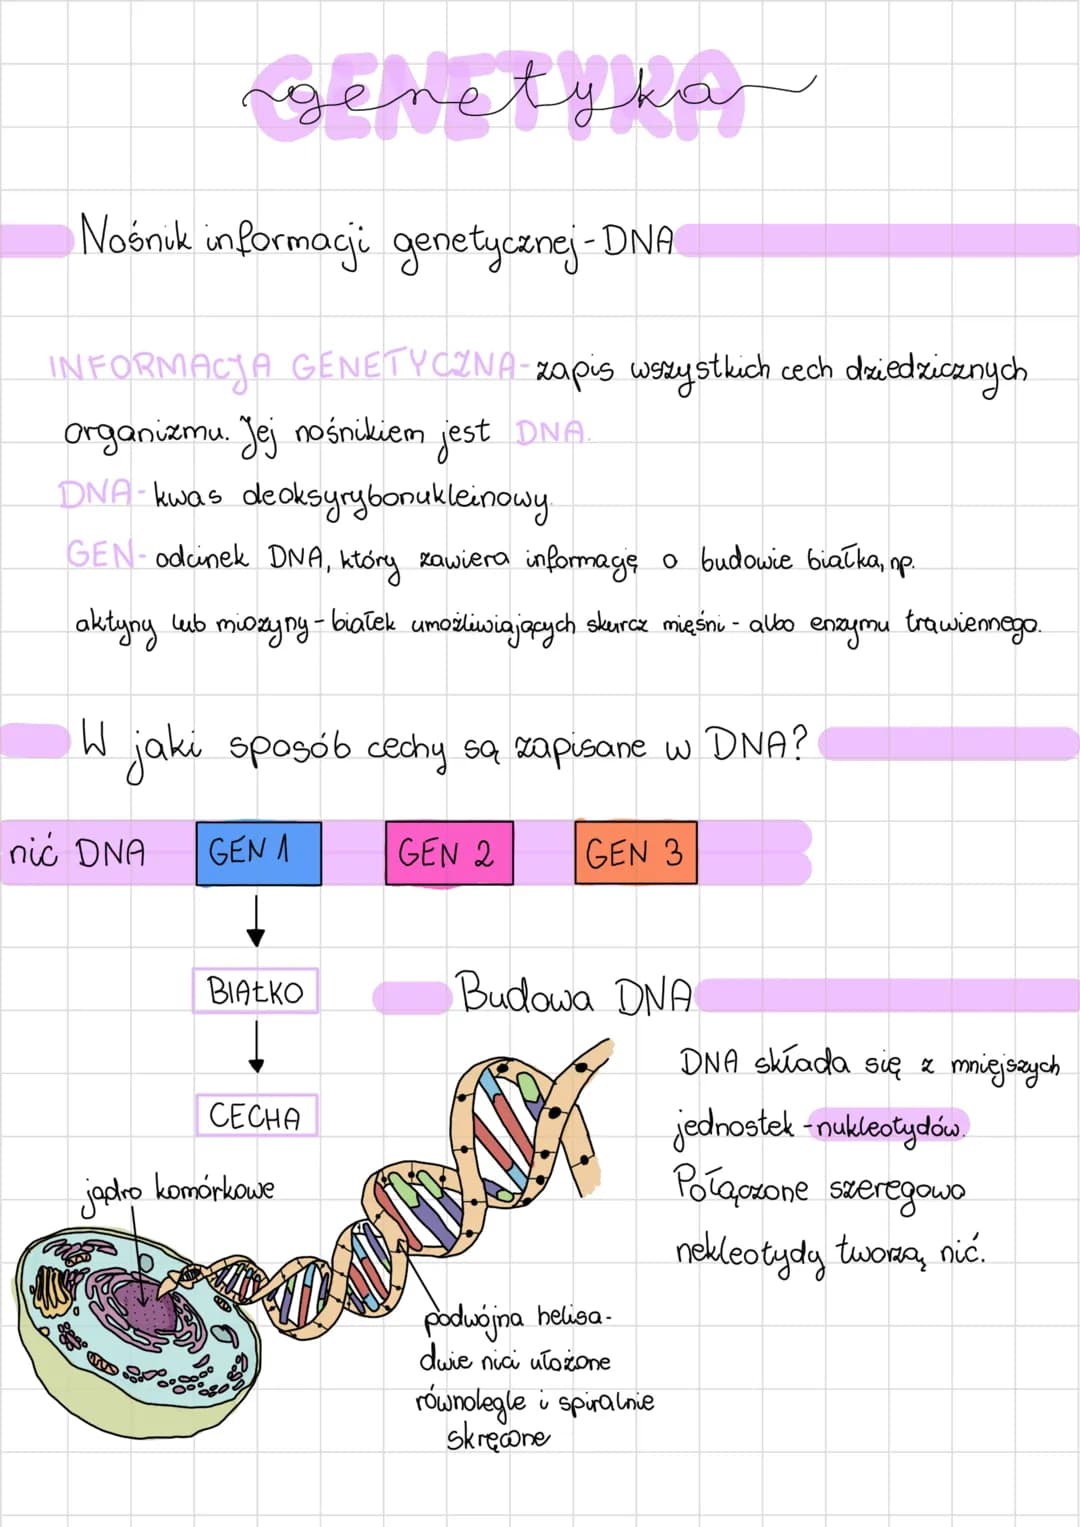 GENETYKA
genetyka
Nośnik informacji genetycznej - DNA
INFORMACJA GENETYCZNA - zapis wszystkich cech dziedzicznych
organizmu. Jej nośnikiem jest DNA.
DNA - kwas deoksyrybonukleinowy.
GEN - odcinek DNA, który zawiera informację o budowie białka, np.
aktyny lub miozyny - białek umożliwiających skurcz mięśni - albo enzymu trawiennego.
W jaki sposób cechy są zapisane w DNA?
nić DNA GEN 1 GEN 2 GEN 3
BIAŁKO
CECHA
Budowa DNA
DNA składa się z mniejszych
jednostek - nukleotydów.
Połączone szeregowo
nekleotydy tworzą nić.
jądro komórkowe
podwójna helisa -
dwie nici ułożone
równolegle i spiralnie
skręcone